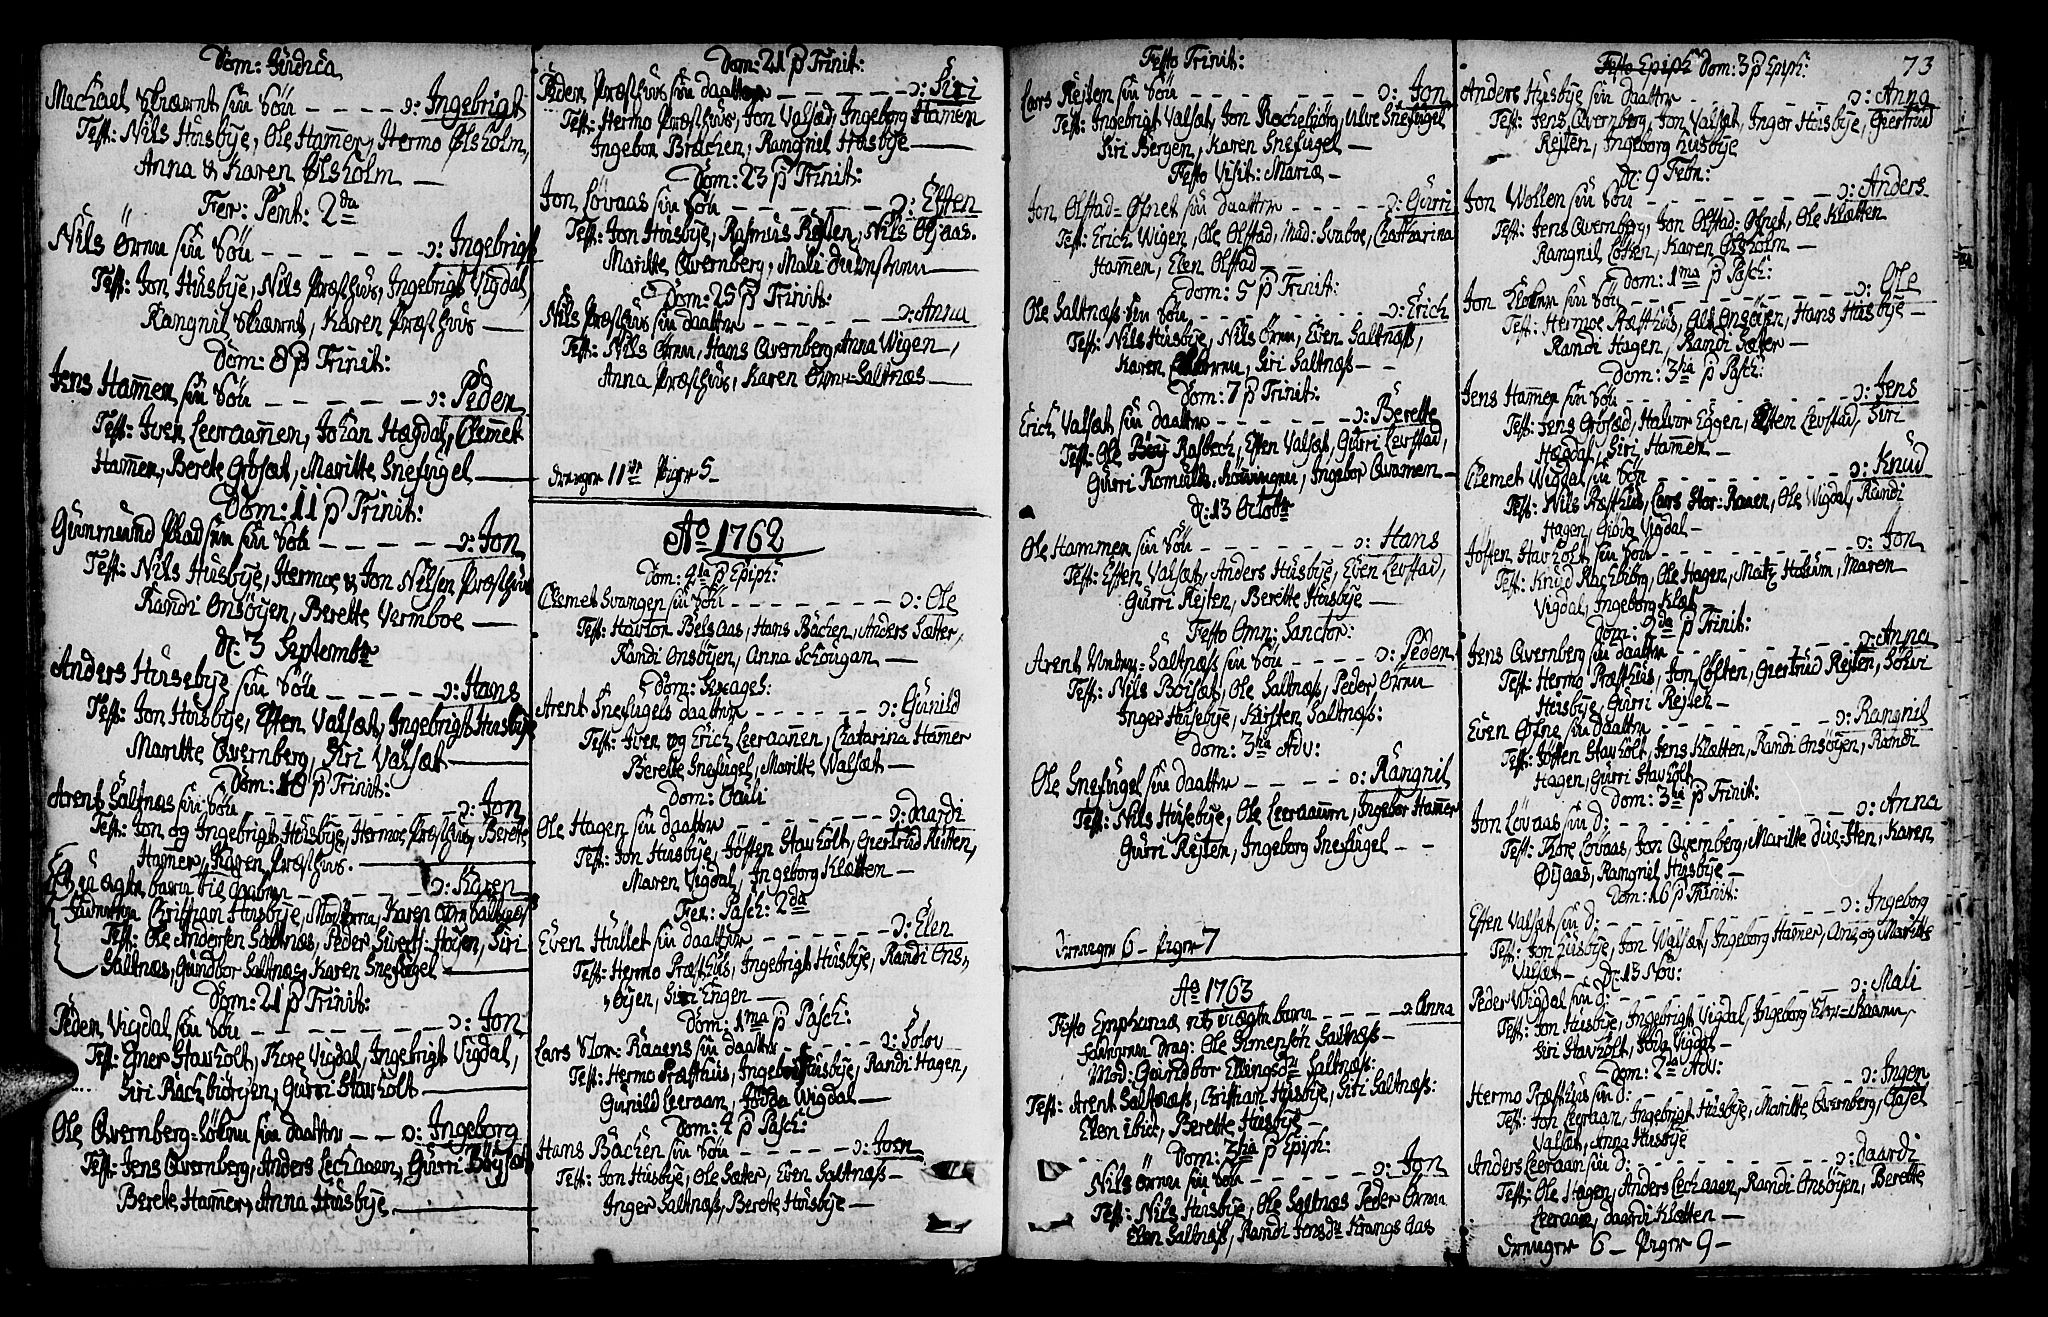 Dom: Judica
Michael Skiærst sin Søn - - - - ɔ: Ingebrigt
Test: Nils Husbÿe, Ole Ham̄er, Hermo Ølsholm,
Anna & Karen Ølsholm —
Fer: Pent: 2da
Nils Örnu sin Søn - - - - - ɔ: Ingebrigt
Test: Jon Husbÿe, Nils Præsthus, Ingebrigt Vigdal,
Rangnil Skiærst, Karen Præsthus —
Dom: 8 p Trinit:
Jens Ham̄en sin Søn - - - - - ɔ: Peder
Test: Iver Leeraam̄en, Johan Hægdal, Clemet
Ham̄en, Berete Grøsæt, Maritte Snefugel —
Dom: 11 p Trinit:
Gunmund sin Søn - - - - ɔ: Jon
Test: Nils Husbÿe, Hermoe & Jon Nilsen Præsthus
Randi Onsøÿen, Berette Vermboe —
d: 3 Septembr
Anders Husebÿe sin Søn - - - - ɔ: Hans
Test: Jon Husbÿe, Esten Valsæt, Ingebrigt Husbÿe
Maritte Qvernberg, Siri Valsæt —
Dom: 18 p Trinit:
Arent Saltnæs sin Søn - - - - ɔ: Jon
Test: Jon og Ingebrigt Husbÿe, Hermoe Præsthus, Berette
Ham̄er, Karen Præsthus. —
Et uægte barn - - - - ɔ: Karen
Christian Husbÿe, Karen Saltnæs
Test: Ole Andersen Saltnæs, Peder Sivert: Hoÿen, Siri
Saltnæs, Gundbor Saltnæs, Karen Snefugel —
Dom: 21 p Trinit:
Peder Vigdal sin Søn - - - - ɔ: Jon
Test: Einer Stavholt, Thore Vigdal, Ingebrigt Vigdal,
Siri Rachbiörgen, Gurri Stavholt —
Ole Qvernberg sin daatter - - ɔ: Ingeborg
Test: Jens Qvernberg, Anders Leeraaen, Gurri Böÿsæt
Berete Ham̄er, Anna Husbÿe —
Dom: 21 p Trinit:
Peder Præsthus sin daatter - - - - ɔ: Siri
Test: Hermo Præsthus, Jon Valsæt, Ingeborg Ham̄en
Ingebor Brachen, Rangnil Husbÿe —
Dom: 23 p Trinit:
Jon Lövaas sin Søn - - - - ɔ: Esten
Test: Jon Husbÿe, Rasmus Reisten, Nils Øÿaas.
Maritte Qvernberg, Mali —
Dom: 25 p Trinit:
Nils Præsthus sin daatter - - - - ɔ: Anna
Test: Nils Ørnu, Hans Qvernberg, Anna Wigen,
Anna Præsthus, Karen Ørnu-Saltnæs —
Drenger 11 Piger 5
Ao 1762
Dom: 4ta p Epiph:
Clemet Svangen sin Søn - - - - ɔ: Ole
Test: Havtor Belsaas, Hans Bachen, Anders Sæter,
Randi Onsøÿen, Anna Schougan —
Dom: Sexages:
Arent Snefugels daatter - - - - ɔ: Gunild
Test: Iver og Erich Leeraanen, Chatarina Ham̄er
Berette Snefugel, Maritte Walsæt —
Dom: Oculi
Ole Hagen sin daatter - - - - ɔ: daardi
Test: Jon Husbÿe, Jösten Stavholt, Giertrud Reitten,
Maren Vigdal, Ingeborg Klætten —
Fer: Pasch: 2da
Even Hullet sin daatter - - - - ɔ: Elen
Test: Hermo Præsthus, Ingebrigt Husbÿe, Randi Ons,,
,,øÿen, Siri Engen —
Dom: 1ma p Pasch:
Lars Stor-Raaens sin daatter - - - - ɔ: Solov
Test: Hermo Præsthus, Husbÿe, Randi Hagen,
Gunild Leeraan, Wigdal —
Dom: 4 p Pasch:
Hans Bachen sin Søn - - - - ɔ: Joen
Test: Jon Husbÿe, Ole Sæter, Even Saltnæss —
Inger Saltnæss, Berette Husbÿe —
Festo Trinit:
Lars Reisten sin Søn - - - - ɔ: Jon
Test: Ingebrigt Valsæt, Jon Rochebiörg, Snefugel
Siri Bergen, Karen Snefugel —
Festo Visit: Mariæ —
Jon Olstad-Øsnet sin daatter - - - - ɔ: Gurri
Test: Erich Wigen, Ole Olstad, Mad: Svaboe, Chatharina
Ham̄en, Elen Olstad —
Dom: 5 p Trinit:
Ole Saltnæss sin Søn - - - - ɔ: Erich
Test: Nils Husbÿe, Nils Ørnu, Even Saltnæss,
Karen Ørnu, Siri Saltnæss —
Dom: 7 p Trinit:
Erich Valsæt sin daatter - - - - ɔ: Berette
Test: Ole Rosbech, Esten Valsæt, Gurri Levstad,
Gurri Romulds, Ingebor Qvamen —
d: 13 Octobr
Ole Hammer sin Søn - - - - ɔ: Hans
Test: Esten Valsæt, Anders Husbÿe, Even Levstad,
Gurri Rejten, Berette Husbÿe —
Festo Omn: Sanctor:
Arent Saltnæss sin Søn - - - - ɔ: Peder
Test: Nils Böisæt, Ole Saltnæss, Peder Ørnu
Inger Husebÿe, Kirsten Saltnæss:
Dom: 3tia Adv:
Ole Snefugel sin daatter - - - - ɔ: Rangnil
Test: Nils Husebÿe, Ole Leeraaen, Ingebor Ham̄er
Gurri Rejten, Ingeborg Snefugel —
Drenger 6 — Piger 7
Ao 1763
Festo Epiphaniæ et uægte barn - - - - ɔ: Anna
Ole Simensön Saltnæss
Mod: Gundbor Ellingsdr Saltnæss:
Test: Arent Saltnæss, Christian Husbÿe, Siri Saltnæss:
Elen ibid, Berette Husbÿe —
Dom: 3tia p Epiph:
Nils Örnu sin Søn - - - - ɔ: Jon
Test: Nils Husbÿe, Ole Saltnæs Peder Örnu
Elen Saltnæss, Randi Jonsdr Krangsaas
73
Festo Epiph Dom: 3 p Epiph:
Anders Husbÿe sin daatter - - - - ɔ: Anna
Test: Jens Qvernberg, Jon Valsæt, Inger Husbÿe, Giertrud
Rejten, Ingeborg Husbÿe
d: 9 Febr:
Jon Wollen sin Søn - - - - ɔ: Anders
Test: Jens Qvernberg, Jon Olstad-Øsnet, Ole Klætten
Rangnil Løften, Karen Ølsholm —
Dom: 1ma p Pasch:
Jon sin Søn - - - - ɔ: Ole
Test: Hermoe Præsthus, Ole Onsøien, Hans Husbÿe —
Randi Hagen, Randi Sæter —
Dom: 3tia p Pasch:
Jens Ham̄er sin Søn - - - - ɔ: Jens
Test: Jens Grösæd, Halvor Eggen, Esten Levstad, Siri
Hægdal, Siri Ham̄en —
Clemet Wigdal sin Søn - - - - ɔ: Knud
Test: Nils Præsthus, Lars Stor-Raaen, Ole Wigdal, Randi
Hagen, Vigdal —
Josten Stavholt sin Søn - - - - ɔ: Jon
Test: Knud Rachbiörg, Ole Hagen, Matz Horum, Maren
Vigdal, Ingeborg Klæt
Dom: 2da p Trinit:
Jens Qvernberg sin daatter - - - - ɔ: Anna
Test: Hermo Præsthus, Jon Løften, Giertrud Rejten, Solvi
Husbÿe, Gurri Rejten —
Even Øsne sin daatter - - - - ɔ: Rangnil
Test: Jösten Stavholt, Jens Klætten, Randi Onsøÿen, Randi
Hagen, Gurri Stavholt
Dom: 3tia p Trinit:
Jon Lövaas sin d: - - - - ɔ: Anna
Test: Thore Lövaas, Jon Qvernberg, Maritte, Karen
Øÿaas, Rangnil Husbÿe —
Dom: 16 p Trinit:
Esten Valsæt sin d: - - - - ɔ: Ingeborg
Test: Jon Husbÿe, Jon Walsæt, Ingeborg Ham̄er, Ane og Maritte
Valsæt — d: 13 Nov:
Peder Wigdal sin d: - - - - ɔ: Mali
Test: Jon Husbÿe, Ingebrigt Vigdal, Ingeborg Stor-Raaen,
Siri Stavholt, Vigdal —
Dom: 2da Adv:
Hermo Præsthus sin d: - - - - ɔ: Inger
Test: Jon Leeraan, Ingebrigt Husbÿe, Maritte Qvernberg,
Valsæt, Anna Husbÿe
Anders Leeraan sin d: - - - - ɔ: daardi
Test: Ole Hagen, Anders Leeraaen, Randi Onsøÿen, Berette
Leeraan, daardi Klætten —
Drenger 6 — Piger 9 —